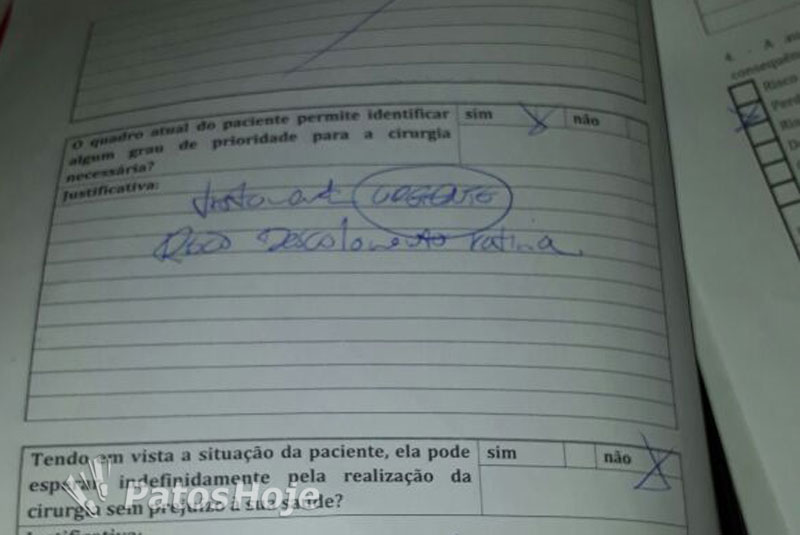 O quadro atual do paciente permite identificar
algum grau de prioridade para a cirurgia
necessária?
sim X não
Justificativa:
tratamento URGENTE
Risco Descolamento retina.
Tendo em vista a situação da paciente, ela pode
esperar indefinidamente pela realização da
cirurgia sem prejuízo à sua saúde?
sim não X
PatosHoje
4. A
consequên
Risco
Perd
Ris
D